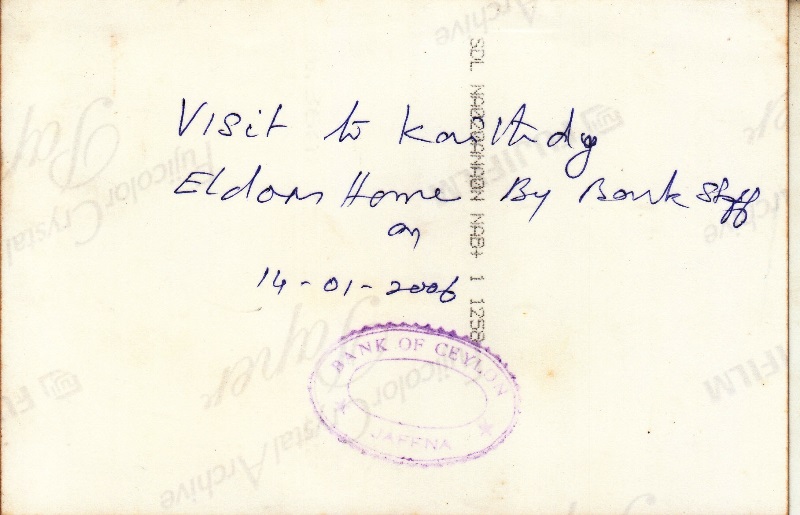 Visit to Kaithdy
Eldors Home By Bank Staff
on
14-01-2006
BANK OF CEYLON
JAFFNA
Fujicolor Crystal Archive
Paper
FUJIFILM